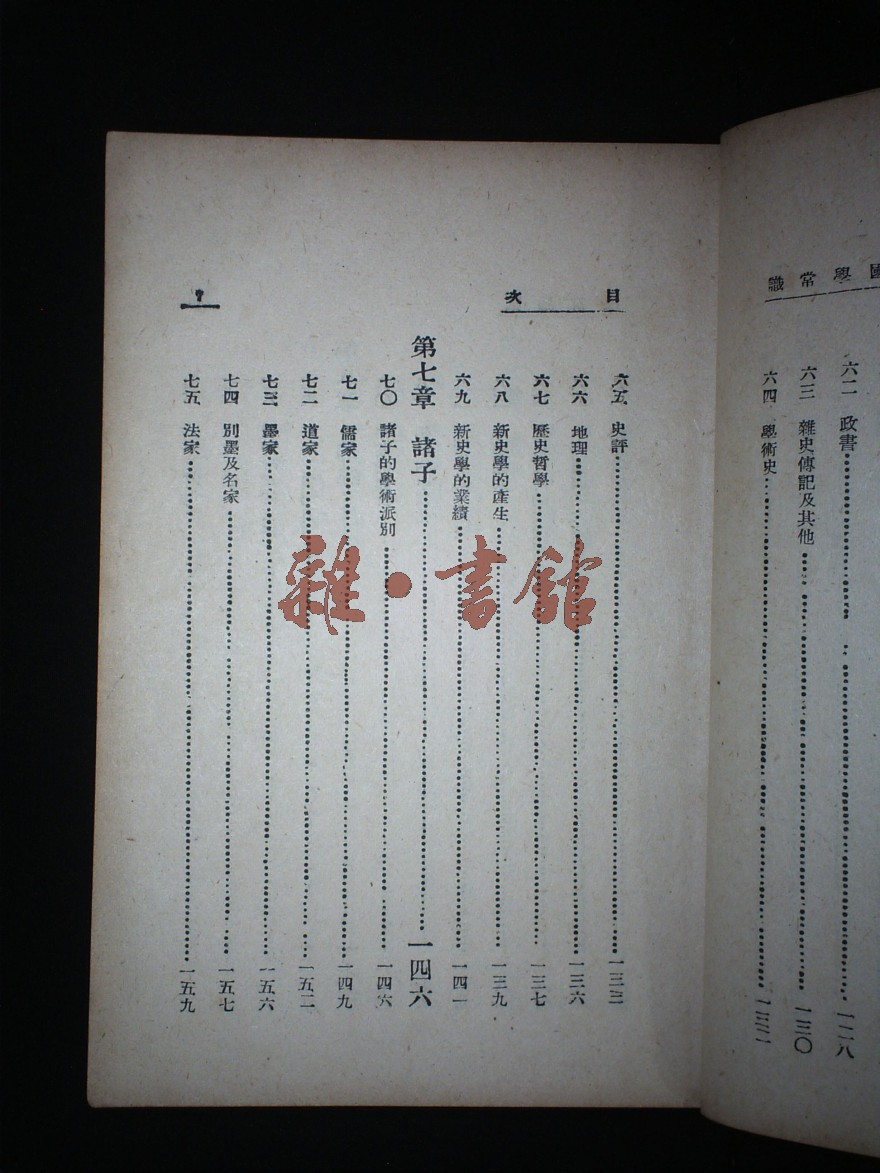 國學常識
六二 政書 一二八
六三 雜史傳記及其他 一三〇
六四 學術史 一三二
目次
六五 史評 一三三
六六 地理 一三六
六七 歷史哲學 一三七
六八 新史學的產生 一三九
六九 新史學的業績 一四一
第七章 諸子 一四六
七〇 諸子的學術派別 一四六
七一 儒家 一四九
七二 道家 一五二
七三 墨家 一五六
七四 別墨及名家 一五七
七五 法家 一五九
雜·書館